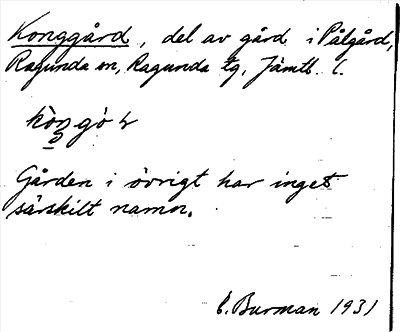 Konggård, del av gård i Pålgård,
Ragunda sn, Ragunda tg, Jämtl. l.
Gården i övrigt har inget
särskilt namn.
E. Burman 1931